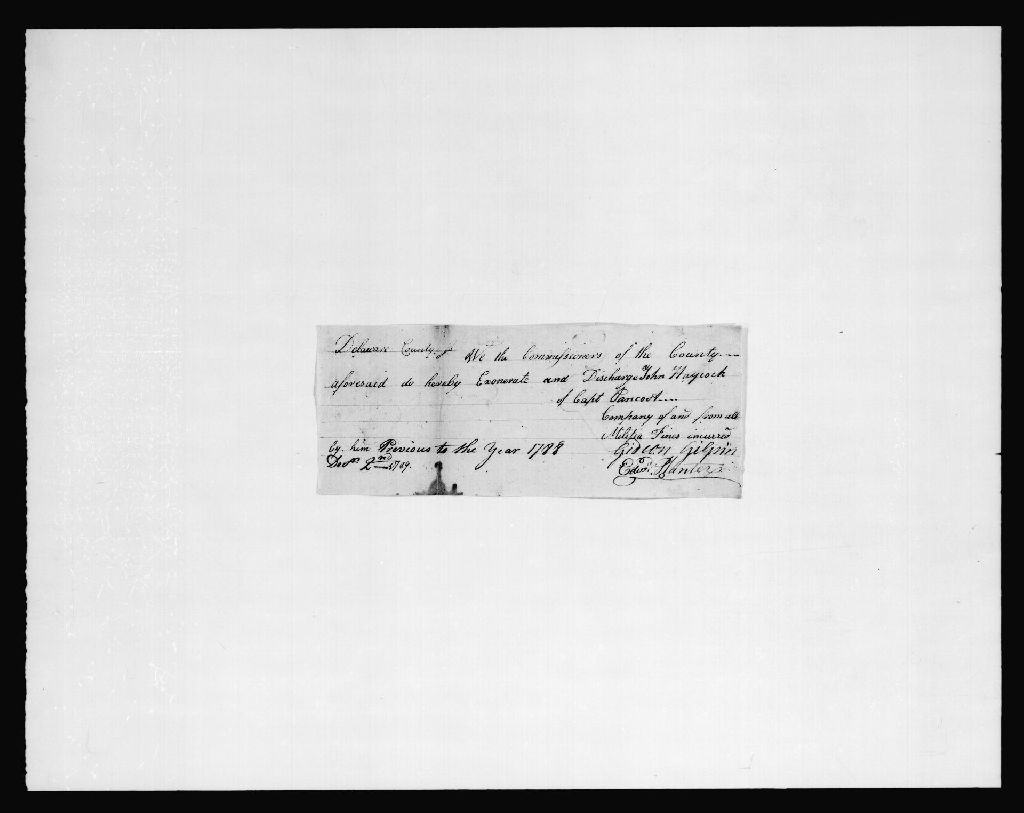 Delaware County ss We the Commissioners of the County
aforesaid do hereby Exonerate and Discharge John Haycock
of Capt Pancost
Company of and from all
Militia Fines incurred
by him Previous to the Year 1788
Gideon Gilpin
Decr 2nd 1789.
Edwd. Hunter